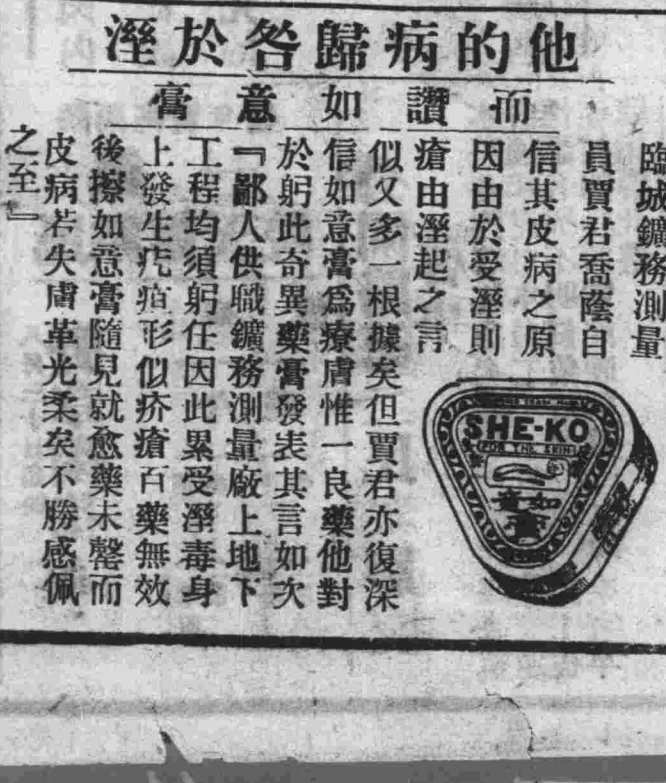 他的病歸咎於溼
而讚如意膏
臨城鑛務測量
員賈君喬蔭自
信其皮病之原
因由於受溼則
瘡由溼起之言
似又多一根據矣但賈君亦復深
信如意膏爲療膚惟一良藥他對
於躬此奇異藥膏發表其言如次
『鄙人供職鑛務測量廠上地下
工程均須躬任因此累受溼毒身
上發生疙疸形似疥瘡百藥無效
後擦如意膏隨見就愈藥未罄而
皮病若失膚革光柔矣不勝感佩
之至』
SHE-KO
FOR THE SKIN
如意
膏